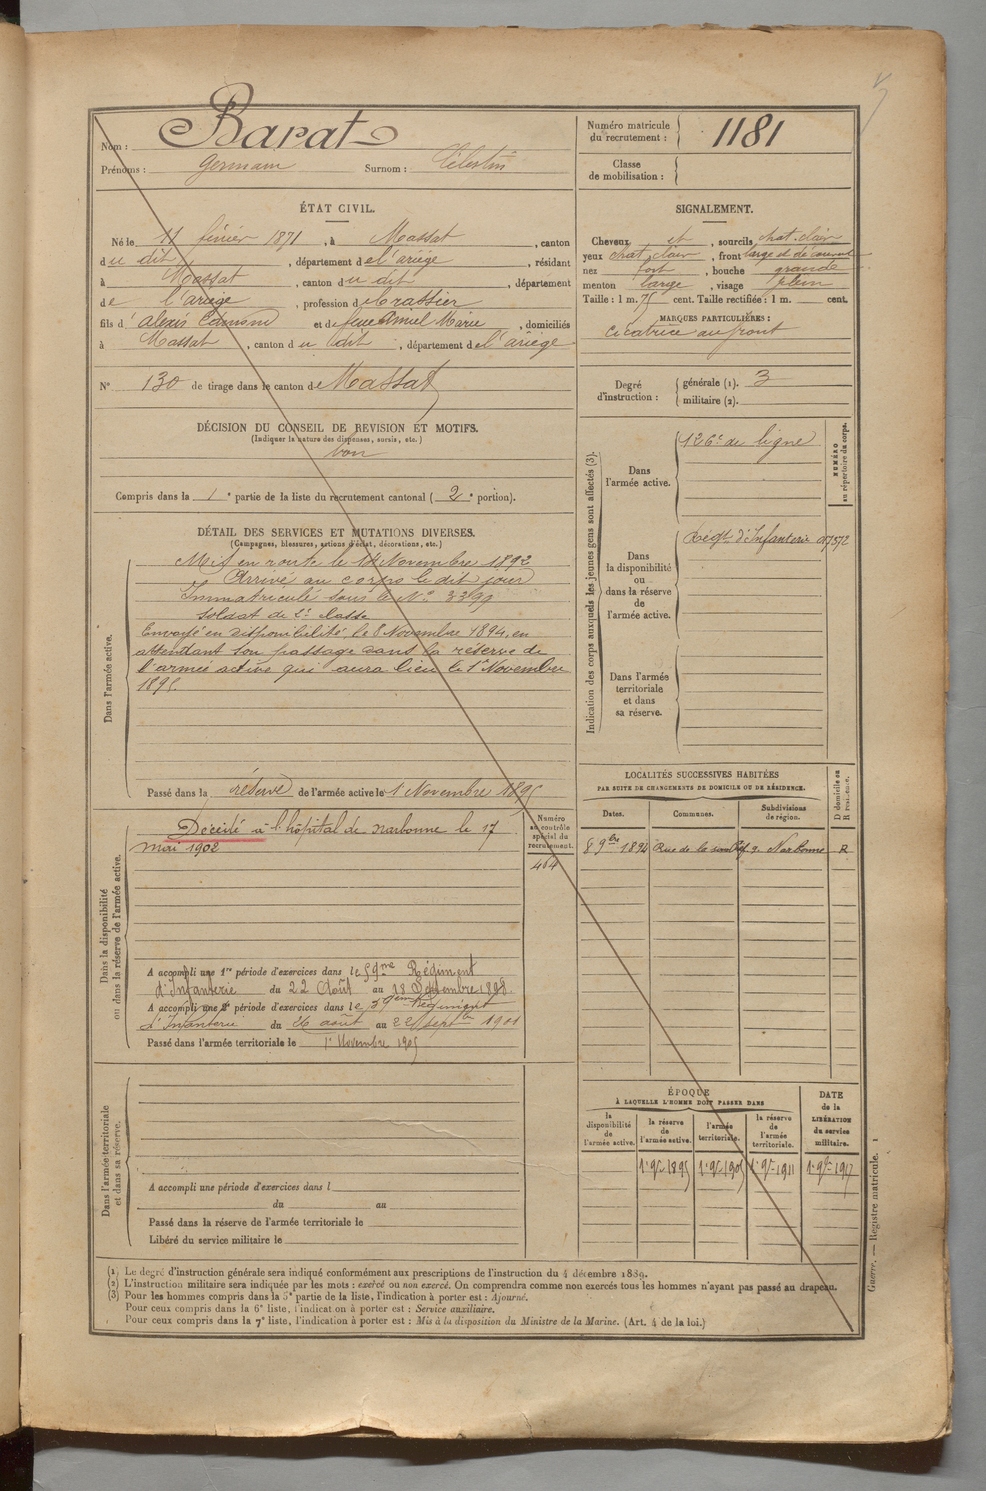 Nom : Barat
Prénoms : Germain Surnom : Célestin
ÉTAT CIVIL.
Né le 11 février 1871, à Massat, canton
du dit, département de l'ariège, résidant
à Massat, canton du dit, département
de l'ariège, profession de
fils d' alexis Edmond et de feue Marie, domiciliés
à Massat, canton du dit, département de l'ariège
N° 130 de tirage dans le canton de Massat
DÉCISION DU CONSEIL DE REVISION ET MOTIFS.
(Indiquer la nature des dispenses, sursis, etc.)
bon
Compris dans la 1e partie de la liste du recrutement cantonal (2e portion).
DÉTAIL DES SERVICES ET MUTATIONS DIVERSES.
(Campagnes, blessures, actions d'éclat, décorations, etc.)
Dans l'armée active.
Mis en route le 14 Novembre 1892
Arrivé au corps le dit jour
Immatriculé sous le N° 3399
Soldat de 2e classe
Envoyé en disponibilité, le 8 Novembre 1894, en
attendant son passage dans la réserve de
l'armée active qui aura lieu le 1er Novembre
1895.
Passé dans la réserve de l'armée active le 1 Novembre 1895
Dans la disponibilité
ou dans la réserve de l'armée active.
Numéro
au contrôle
spécial du
recrutement.
464
Décédé à l'hôpital de Narbonne le 17
mai 1902
A accompli une 1re période d'exercices dans le 59me Régiment
d'Infanterie du 22 Août au 18 Septembre 1898.
A accompli une 2e période d'exercices dans le 59ème Régiment
d'Infanterie du 26 août au 22 septbre 1901
Passé dans l'armée territoriale le 1er Novembre 1905
Dans l'armée territoriale
et dans sa réserve.
A accompli une période d'exercices dans l
du au
Passé dans la réserve de l'armée territoriale le
Libéré du service militaire le
Numéro matricule
du recrutement : 1181
Classe
de mobilisation :
SIGNALEMENT.
Cheveux et, sourcils chat. clair
yeux chat. clair, front large et découvert
nez fort, bouche grande
menton large, visage plein
Taille : 1 m. 75 cent. Taille rectifiée : 1 m. cent.
MARQUES PARTICULIÈRES :
Cicatrice au front
Degré
d'instruction :
générale (1). 3
militaire (2).
Indication des corps auxquels les jeunes gens sont affectés (3).
NUMÉRO
au répertoire du corps.
Dans
l'armée active.
126e de ligne
Dans
la disponibilité
ou
dans la réserve
de
l'armée active.
Régt. d'Infanterie
Dans l'armée
territoriale
et dans
sa réserve.
LOCALITÉS SUCCESSIVES HABITÉES
PAR SUITE DE CHANGEMENTS DE DOMICILE OU DE RÉSIDENCE.
D domicile ou
R résidence.
Dates. Communes. Subdivisions
de région.
8 9bre 1894 Rue de la Narbonne R
ÉPOQUE
À LAQUELLE L'HOMME DOIT PASSER DANS
DATE
de la
LIBÉRATION
du service
militaire.
la
disponibilité
de
l'armée active.
la réserve
de
l'armée active.
l'armée
territoriale.
la réserve
de
l'armée
territoriale.
1er 9bre 1895 1er 9bre 1905 1er 9bre 1911 1er 9bre 1917
(1) Le degré d'instruction générale sera indiqué conformément aux prescriptions de l'instruction du 4 décembre 1889.
(2) L'instruction militaire sera indiquée par les mots : exercé ou non exercé. On comprendra comme non exercés tous les hommes n'ayant pas passé au drapeau.
(3) Pour les hommes compris dans la 5e partie de la liste, l'indication à porter est : Ajourné.
Pour ceux compris dans la 6e liste, l'indication à porter est : Service auxiliaire.
Pour ceux compris dans la 7e liste, l'indication à porter est : Mis à la disposition du Ministre de la Marine. (Art. 4 de la loi.)
Guerre. — Registre matricule. 1